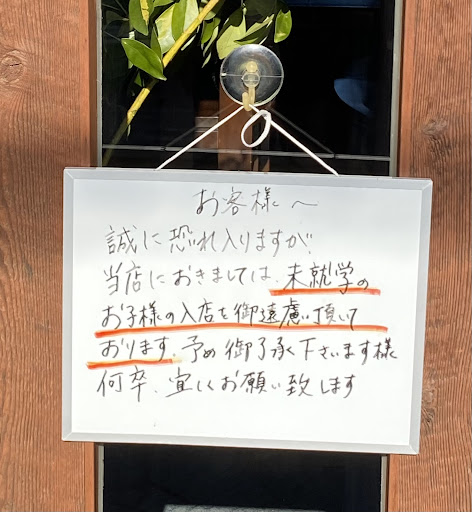 お客様〜
誠に恐れ入りますが、
当店におきましては、未就学の
お子様の入店を御遠慮い頂いて
おります、予め御了承下さいます様
何卒、宜しくお願い致します